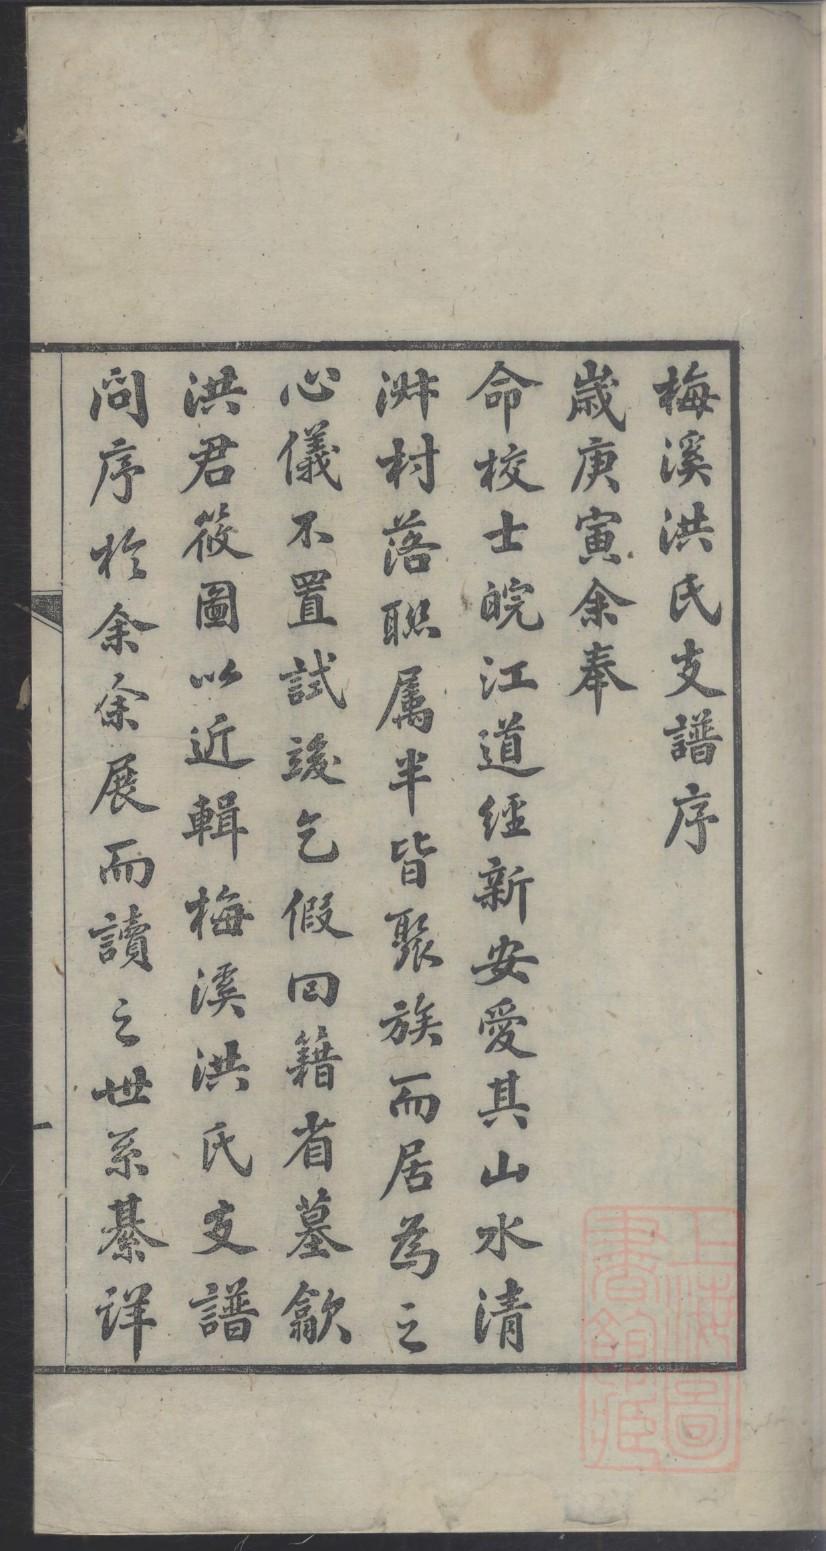 梅溪洪氏支譜序
歲庚寅余奉
命校士皖江道經新安愛其山水清
淑村落聯属半皆聚族而居為之
心儀不置試竣乞假囘籍省墓歙
洪君筱圖以近輯梅溪洪氏支譜
問序於余余展而讀之世系綦詳
上海圖
書館藏